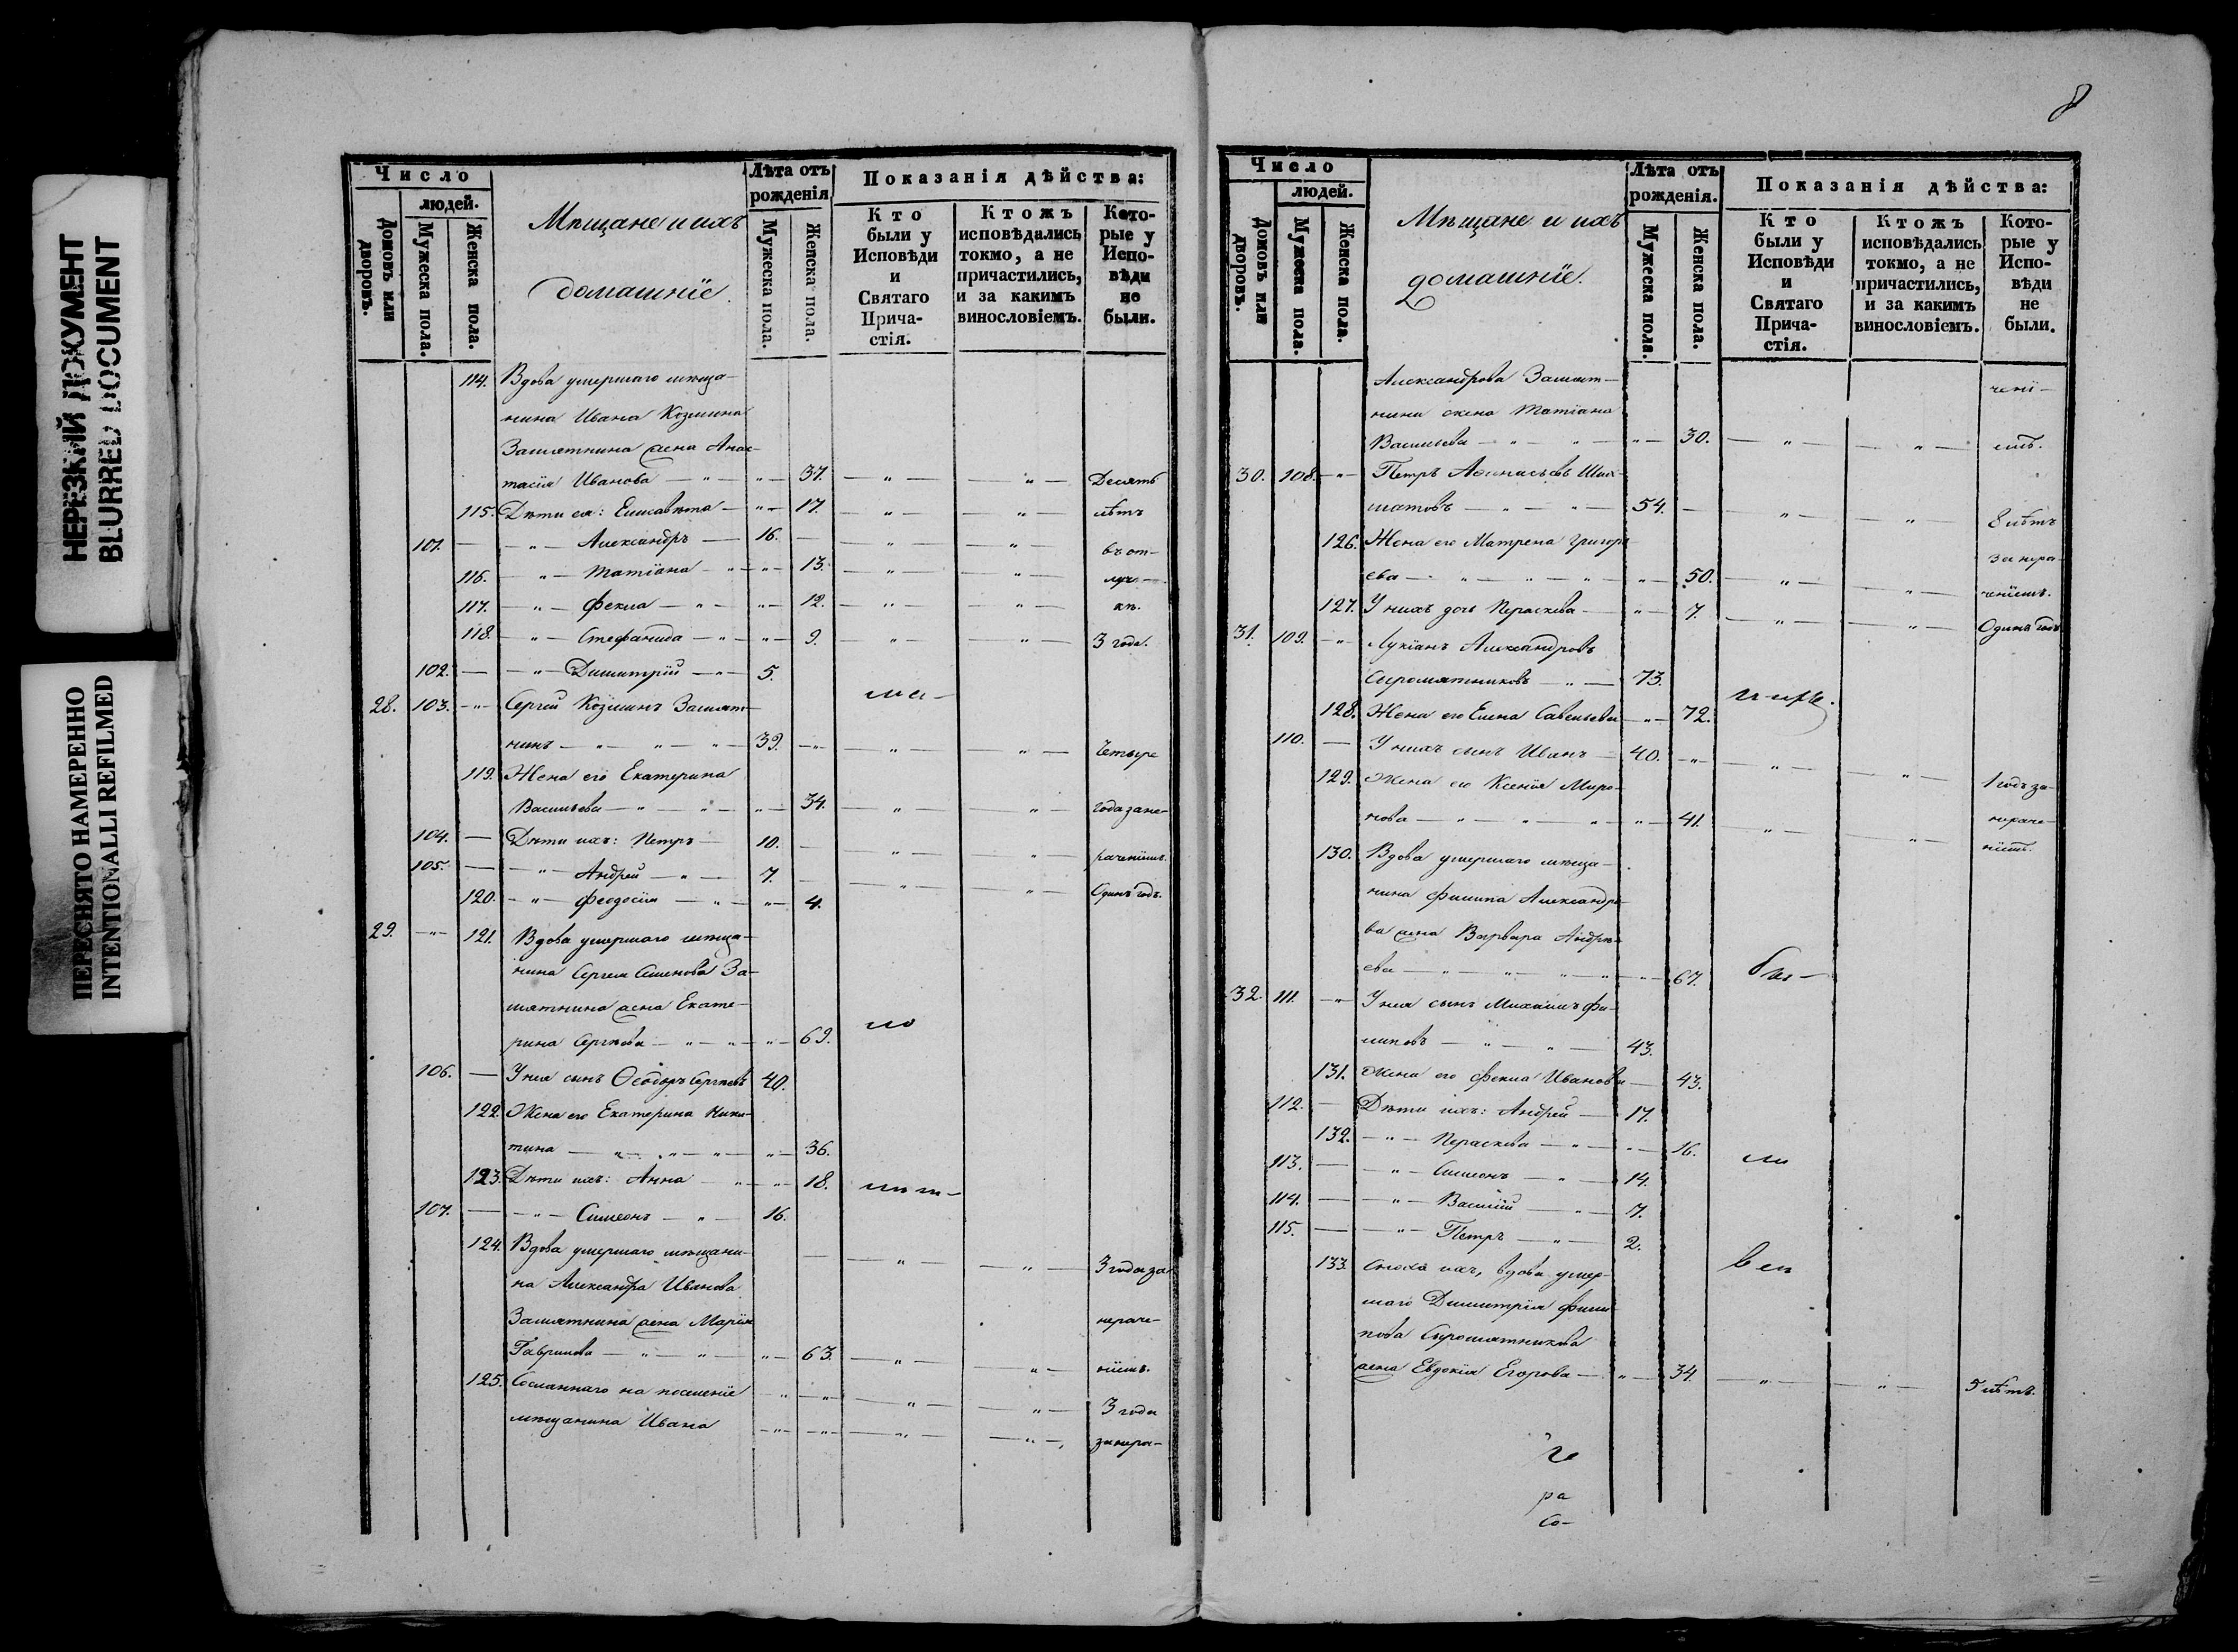 НЕРЕЗКИЙ ДОКУМЕНТ
BLURRED DOCUMENT
ПЕРЕСНЯТО НАМЕРЕННО
INTENTIONALLI REFILMED
Число
людей.
Домовъ или дворовъ.
Мужеска пола.
Женска пола.
Мѣщане и ихъ
домашніе.
Лѣта отъ рожденія
Мужеска пола.
Женска пола.
Показанія дѣйства:
Кто были у Исповѣди и Святаго Прича-стія.
Ктожъ исповѣдались токмо, а не причастились, и за какимъ винословіемъ.
Кото-рые у Испо-вѣди не были.
114. Вдова умершаго мѣща-
нина Ивана Козмина
Замятнина жена Анас-
тасія Иванова — " — " — 37. — " — — " — Десять
115. Дѣти ея: Елисавета — " — 17. — " — — " — лѣтъ
101. — — " — Александръ — 16. — — " — — " — въ от-
116. — " — Татіана — " — " — 13. — " — — " — луч-
117. — " — Фекла — " — " — 12. — " — — " — кѣ.
118. — " — Стефанида — " — " — 9. — " — — " — 3 года.
102. — — " — Димитрій — " — 5.
ма-
28. 103. — " — Сергій Козминъ Замят-
нинъ — " — " — " — 39. — " — — " — — " — Четыре
119. Жена его Екатерина
Васильева — " — " — " — 34. — " — — " — года за не-
104. — Дѣти ихъ: Петръ — 10. — — " — — " — раченіемъ.
105. — — " — Андрей — " — 7. — — " — — " — Одинъ годъ.
120. — " — Феодосія — " — " — 4.
29. — " — 121. Вдова умершаго мѣща-
нина Сергея Семенова За-
мятнина жена Екате-
рина Сергѣева — " — " — " — 69.
ло
106. — У нея сынъ Ѳеодоръ Сергѣевъ 40.
122. Жена его Екатерина Ники-
тина — " — " — " — " — 36.
123. Дѣти ихъ: Анна — " — " — 18.
лѣт-
107. — — " — Симеонъ — " — 16.
124. Вдова умершаго мѣщани- — — " — — " — 3 года за
на Александра Иванова
Замятнина жена Марія нераче-
Гаврилова — " — " — " — 63. — " — — " — ніемъ.
125. Сосланнаго на поселеніе — " — — " — — " — — " — 3 года
мѣщанина Ивана — " — — " — — " — — " — за нера-
8
Число
людей.
Домовъ или дворовъ.
Мужеска пола.
Женска пола.
Мѣщане и ихъ
домашніе.
Лѣта отъ рожденія.
Мужеска пола.
Женска пола.
Показанія дѣйства:
Кто были у Исповѣди и Святаго Прича-стія.
Ктожъ исповѣдались токмо, а не причастились, и за какимъ винословіемъ.
Кото-рые у Испо-вѣди не были.
Александрова Замят- чені-
нина жена Татіана
Васильева — " — " — " — 30. — " — — " — емъ.
30. 108. — " — Петръ Аѳанасьевъ Шах-
матовъ — " — " — 54. — — " — — " — 8 лѣтъ
126. Жена его Матрена Григорь- за нера-
ева — " — " — " — " — 50. — " — — " — ченіемъ.
127. У нихъ дочь Параскева — " — 7. — " — — " — Одинъ годъ
31. 109. — " — Лукіанъ Александровъ
Сыромятниковъ — " — 73.
128. Жена его Елена Савельева — " — 72.
110. — У нихъ сынъ Иванъ — 40. — " — — " — — " — 1 годъ за
129. Жена его Ксенія Миро-
нова — " — " — " — " — 41. — " — — " — нераче-
ніемъ.
130. Вдова умершаго мѣща-
нина Филипа Александро-
ва жена Варвара Андрѣ-
ева — " — " — " — " — 67.
бы-
32. 111. — " — У нея сынъ Михаилъ Фи-
липовъ — " — " — 43.
131. Жена его Фекла Иванова — 43.
112. — Дѣти ихъ: Андрей — 17.
132. — " — Параскева — " — " — 16.
ли
113. — — " — Симеонъ — " — 14.
114. — — " — Василій — " — 7.
115. — — " — Петръ — " — 2.
133. Сноха ихъ, вдова умер-
шаго Димитрія Фили-
пова Сыромятникова
жена Евдокія Егорова — " — 34. — " — — " — 5 лѣтъ.
ра
со-